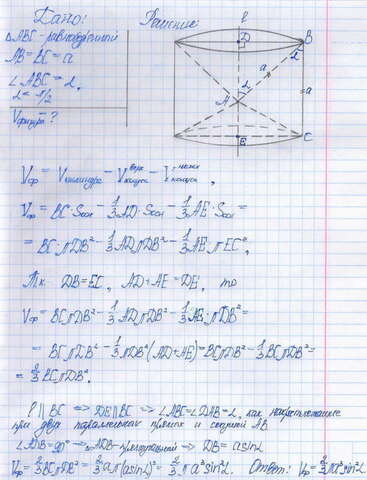 Дано:
Решение:
△ABC - равнобедренный
AB = BC = a
∠ABC = α,
α < π/2
Vфигуры ?
l
D
B
α
a
α
a
A
E
C
Vф = Vцилиндра - Vконуса верх - Vконуса нижн,
Vф = BC·Sосн - 1/3 AD·Sосн - 1/3 AE·Sосн =
= BC·πDB² - 1/3 ADπDB² - 1/3 AE·πEC²,
Т.к. DB = EC, AD + AE = DE, то
Vф = BCπDB² - 1/3 ADπDB² - 1/3 AE·πDB² =
= BCπDB² - 1/3 πDB² (AD + AE) = BCπDB² - 1/3 BCπDB² =
= 2/3 BCπDB².
l ∥ BC => DE ∥ BC => ∠ABC = ∠DAB = α, как накрестлежащие
при двух параллельных прямых и секущей AB
∠ADB = 90° => ADB - прямоугольный => DB = a sin α
Vф = 2/3 BCπDB² = 2/3 aπ(a sin α)² = 2/3 πa³ sin² α. Ответ: Vф = 2/3 πa³ sin² α